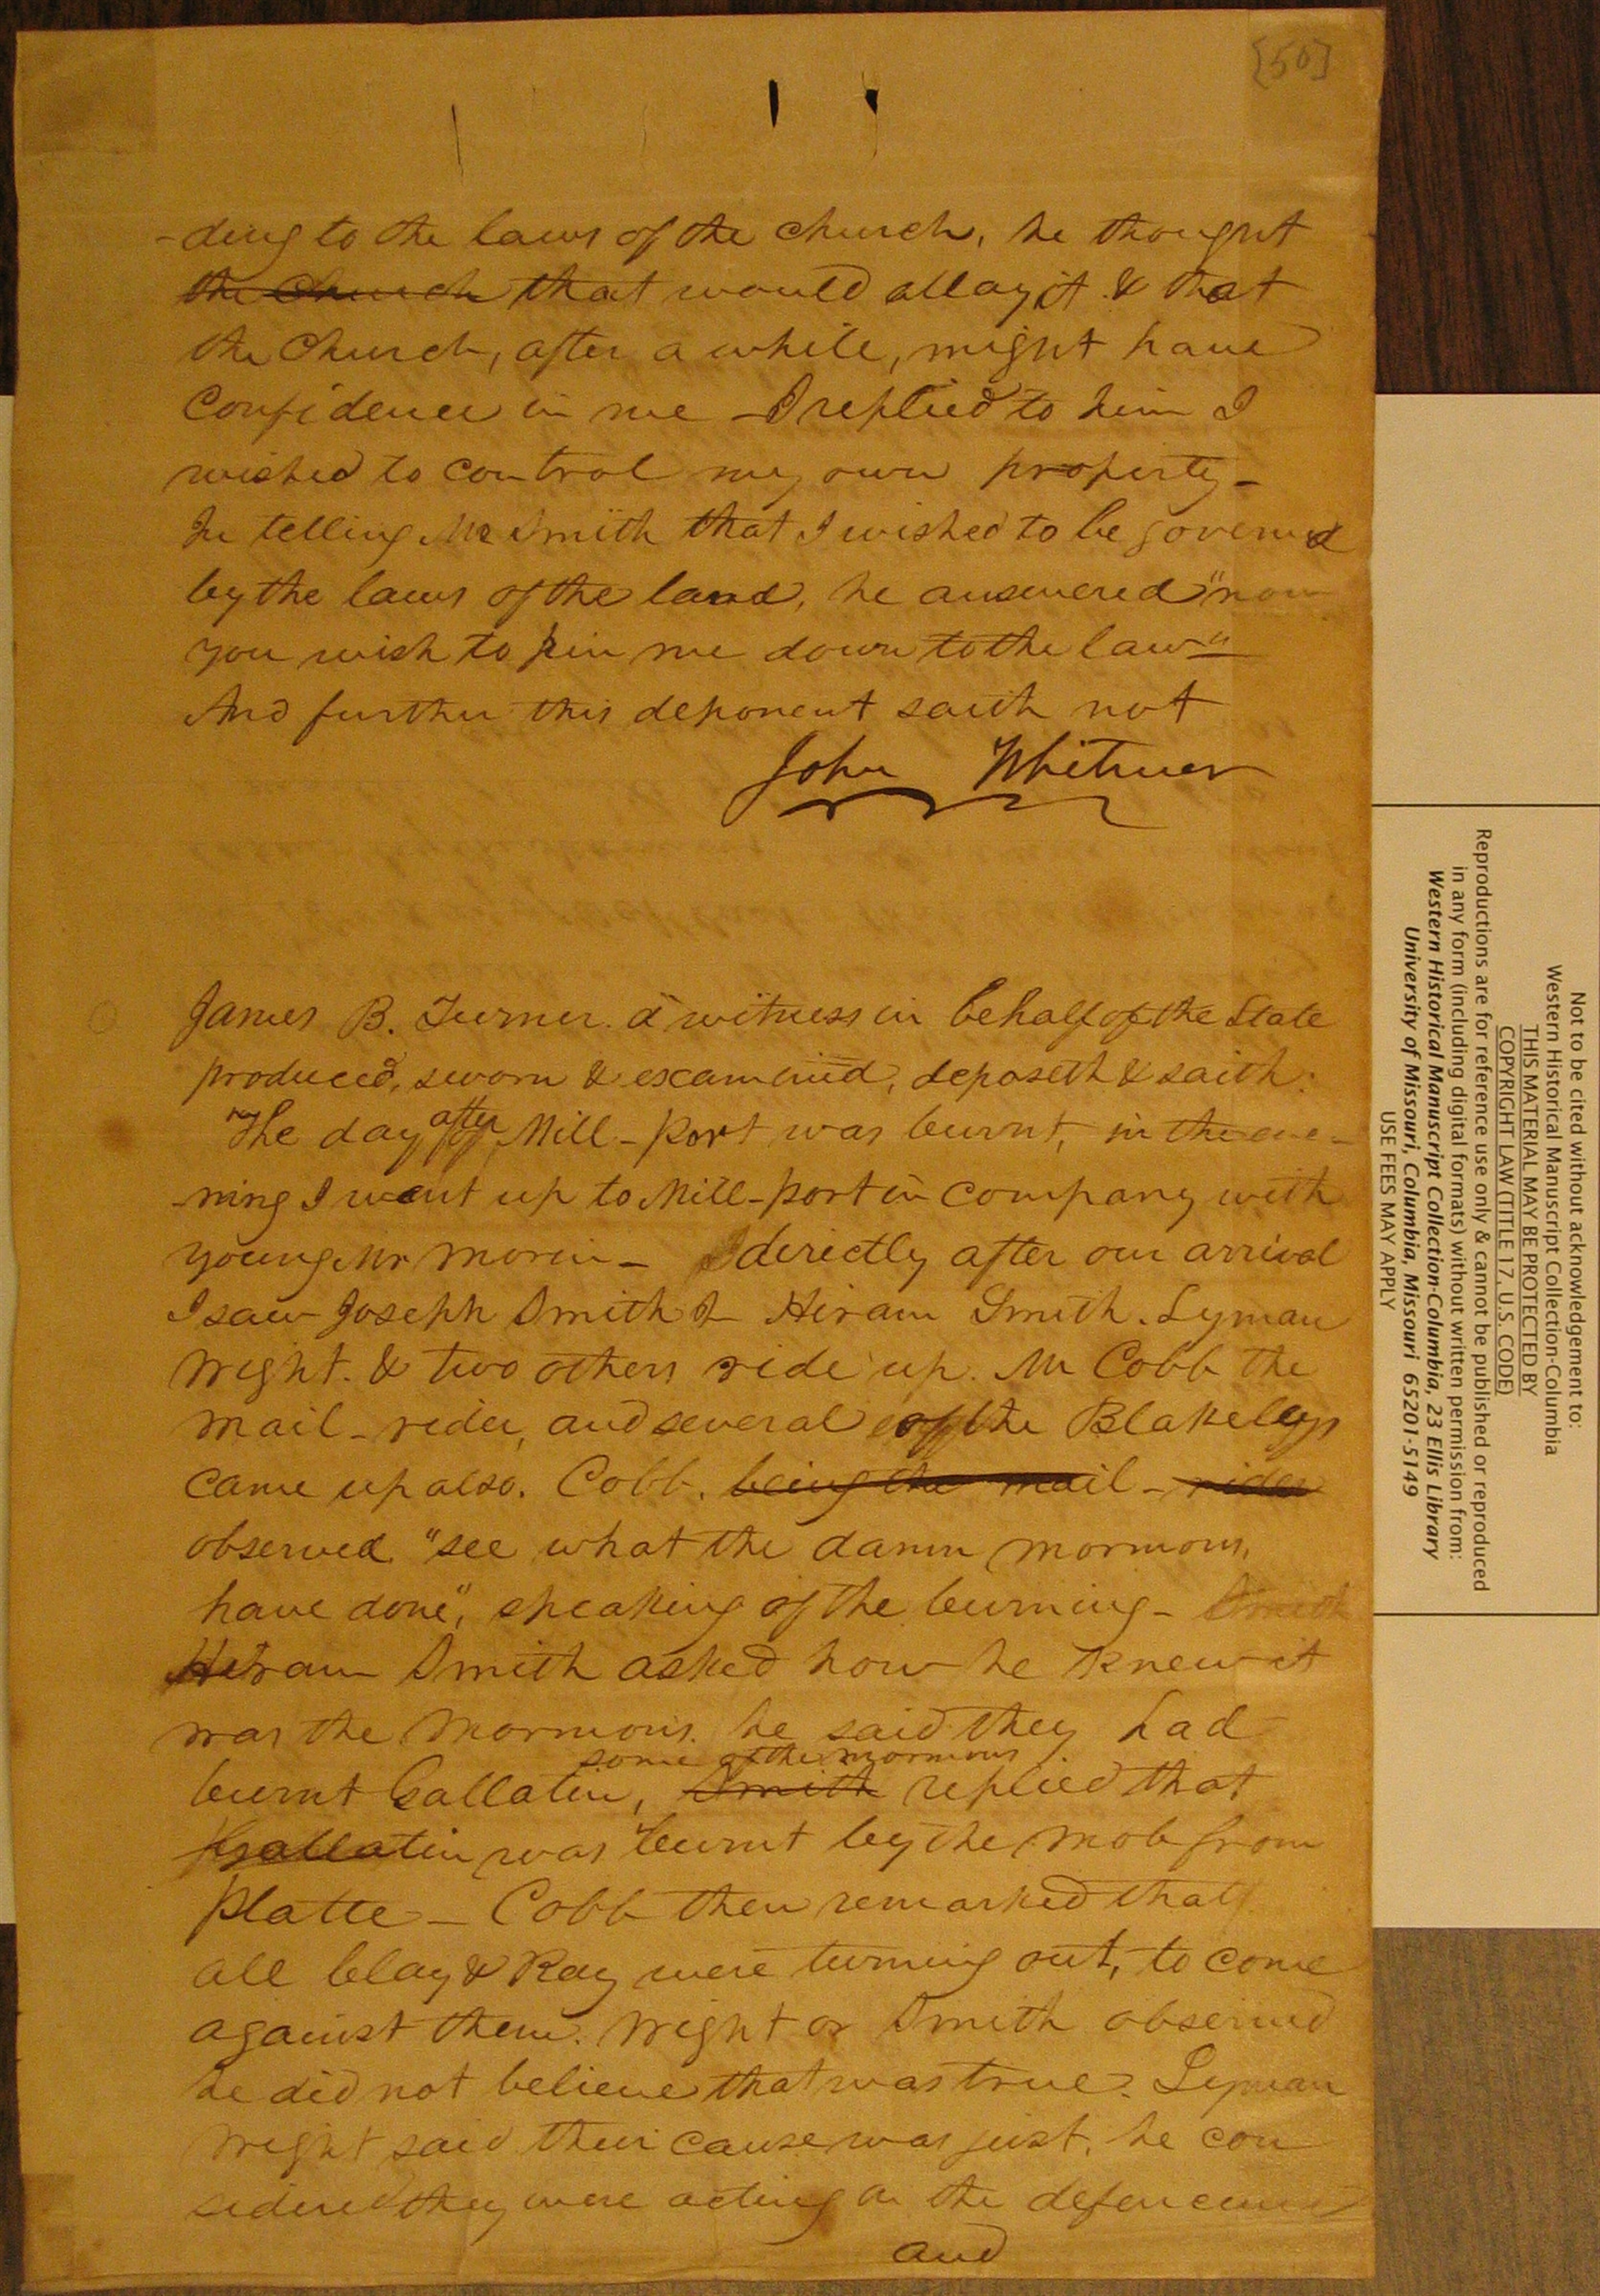 [50]
-ding to the laws of the church, he thought
the church that would allay it & that
the Church, after a while, might have
Confidence in me – I replied to him I
wished to control my own property –
In telling Mr Smith that I wished to be governed
by the laws of the land, he answered "now
you wish to pin me down to the law"
And further this deponent saith not
John Whitmer
James B. Turner. a witness in behalf of the State
produced, sworn & examined, deposeth & saith:
The day after Mill-Port was burnt, in the eve-
-ning I went up to Mill-port in company with
young Mr Morin – directly after our arrival
I saw Joseph Smith Jr Hiram Smith. Lyman
Wight. & two others ride up. Mr Cobb the
mail-rider, and several of the Blakeleys
came up also. Cobb. being the mail-rider
observed. "see what the damn mormons,
have done", speaking of the burning – Smith
Hiram Smith asked how he knew it
was the Mormons. he said they had
some of the mormons
burnt Gallatin, Smith replied that
Gallatin was burnt by the mob from
Platte – Cobb then remarked that
all Clay & Ray were turning out, to come
against them. Wight or Smith observed
he did not believe that was true. Lyman
Wight said their cause was just, he con
sidered they were acting on the defencive
and
Not to be cited without acknowledgement to:
Western Historical Manuscript Collection-Columbia
THIS MATERIAL MAY BE PROTECTED BY
COPYRIGHT LAW (TITLE 17, U.S. CODE)
Reproductions are for reference use only & cannot be published or reproduced
in any form (including digital formats) without written permission from:
Western Historical Manuscript Collection-Columbia, 23 Ellis Library
University of Missouri, Columbia, Missouri 65201-5149
USE FEES MAY APPLY